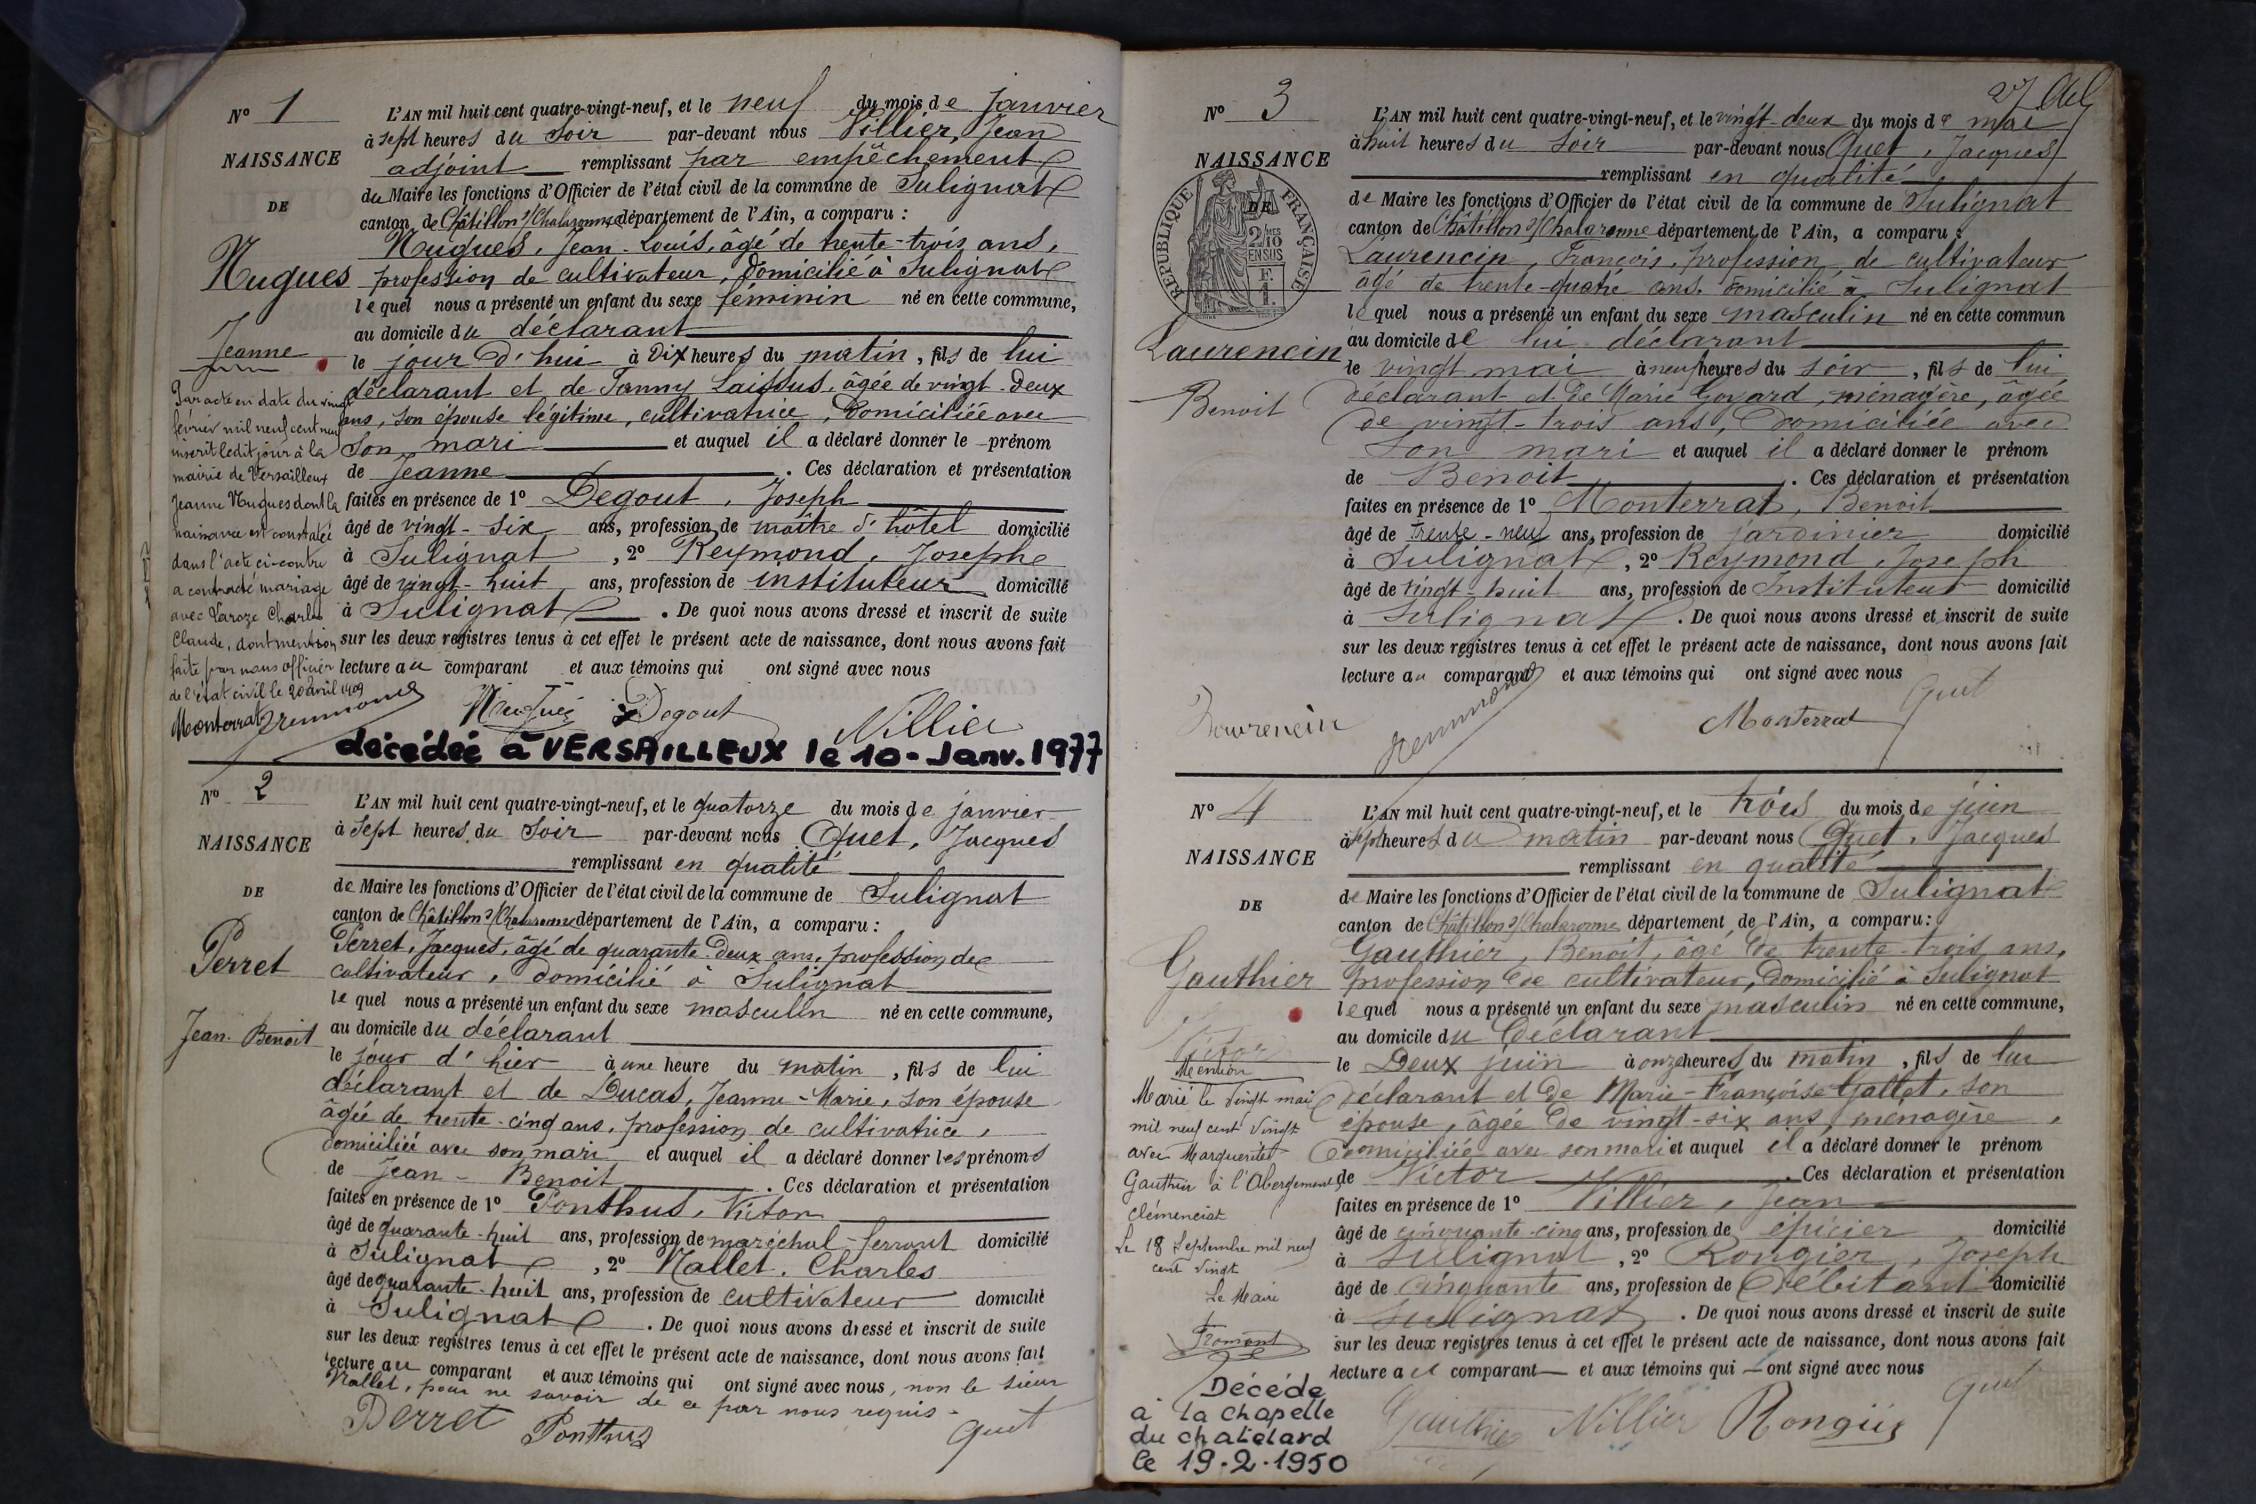 N° 1
NAISSANCE
DE
Nugues
Jeanne
Par acte en date du vingt
février mil neuf cent neuf
inscrit ledit jour à la
mairie de Versailleux
Jeanne Nugues dont la
naissance est constatée
dans l'acte ci-contre
a contracté mariage
avec Laroze Charles
Claude, dont mention
faite par nous officier
de l'état civil le 20 avril 1909
Monterrat
L'AN mil huit cent quatre-vingt-neuf, et le neuf du mois de janvier
à sept heures du soir par-devant nous Villier, Jean
adjoint remplissant par empêchement
du Maire les fonctions d'Officier de l'état civil de la commune de Sulignat
canton de Châtillon s/Chalaronne département de l'Ain, a comparu :
Nugues, Jean-Louis, âgé de trente-trois ans,
profession de cultivateur, domicilié à Sulignat
lequel nous a présenté un enfant du sexe féminin né en cette commune,
au domicile du déclarant
le jour d'hui à dix heures du matin, fils de lui
déclarant et de Fanny Laissus, âgée de vingt-deux
ans, son épouse légitime, cultivatrice, domiciliée avec
son mari et auquel il a déclaré donner le prénom
de Jeanne. Ces déclaration et présentation
faites en présence de 1° Degout, Joseph
âgé de vingt-six ans, profession de maître d'hôtel domicilié
à Sulignat, 2° Reymond, Josephe
âgé de vingt-huit ans, profession de instituteur domicilié
à Sulignat. De quoi nous avons dressé et inscrit de suite
sur les deux registres tenus à cet effet le présent acte de naissance, dont nous avons fait
lecture au comparant et aux témoins qui ont signé avec nous
Nugues Degout Villier
décédée à VERSAILLEUX le 10-Janv. 1977
N° 2
NAISSANCE
DE
Perret
Jean-Benoit
L'AN mil huit cent quatre-vingt-neuf, et le quatorze du mois de janvier
à sept heures du soir par-devant nous Quet, Jacques
remplissant en qualité
de Maire les fonctions d'Officier de l'état civil de la commune de Sulignat
canton de Châtillon s/Chalaronne département de l'Ain, a comparu :
Perret, Jacques, âgé de quarante-deux ans, profession de
cultivateur, domicilié à Sulignat
lequel nous a présenté un enfant du sexe masculin né en cette commune,
au domicile du déclarant
le jour d'hier à une heure du matin, fils de lui
déclarant et de Ducas, Jeanne-Marie, son épouse
âgée de trente-cinq ans, profession de cultivatrice,
domiciliée avec son mari et auquel il a déclaré donner les prénoms
de Jean-Benoit. Ces déclaration et présentation
faites en présence de 1° Ponthus, Victor
âgé de quarante-huit ans, profession de maréchal-ferrant domicilié
à Sulignat, 2° Nallet, Charles
âgé de quarante-huit ans, profession de cultivateur domicilié
à Sulignat. De quoi nous avons dressé et inscrit de suite
sur les deux registres tenus à cet effet le présent acte de naissance, dont nous avons fait
lecture au comparant et aux témoins qui ont signé avec nous, non le sieur
Nallet, pour ne savoir de ce par nous requis.
Perret Ponthus Quet
27
N° 3
NAISSANCE
DE
RÉPUBLIQUE FRANÇAISE
2/10 MES
EN SUS
F.
1.
Laurencin
Benoit
L'AN mil huit cent quatre-vingt-neuf, et le vingt-deux du mois de mai
à huit heures du soir par-devant nous Quet, Jacques
remplissant en qualité
de Maire les fonctions d'Officier de l'état civil de la commune de Sulignat
canton de Châtillon s/Chalaronne département de l'Ain, a comparu :
Laurencin, François, profession de cultivateur
âgé de trente-quatre ans, domicilié à Sulignat
lequel nous a présenté un enfant du sexe masculin né en cette commun
au domicile de lui déclarant
le vingt mai à neuf heures du soir, fils de lui
déclarant et de Marie Goyard, ménagère, âgée
de vingt-trois ans, domiciliée avec
son mari et auquel il a déclaré donner le prénom
de Benoit. Ces déclaration et présentation
faites en présence de 1° Monterrat, Benoit
âgé de trente-neuf ans, profession de jardinier domicilié
à Sulignat, 2° Reymond, Joseph
âgé de vingt-huit ans, profession de Instituteur domicilié
à Sulignat. De quoi nous avons dressé et inscrit de suite
sur les deux registres tenus à cet effet le présent acte de naissance, dont nous avons fait
lecture au comparant et aux témoins qui ont signé avec nous
Laurencin Reymond Monterrat Quet
N° 4
NAISSANCE
DE
Gauthier
Victor
Mention
Marié le vingt mai
mil neuf cent vingt
avec Marguerite
Gauthier à l'Abergement
Clémenciat
Le 18 Septembre mil neuf
cent vingt
Le Maire
Fromont
Décédé
à la chapelle
du chatelard
le 19.2.1950
L'AN mil huit cent quatre-vingt-neuf, et le trois du mois de juin
à sept heures du matin par-devant nous Quet, Jacques
remplissant en qualité
de Maire les fonctions d'Officier de l'état civil de la commune de Sulignat
canton de Châtillon s/Chalaronne département de l'Ain, a comparu :
Gauthier, Benoit, âgé de trente-trois ans,
profession de cultivateur, domicilié à Sulignat
lequel nous a présenté un enfant du sexe masculin né en cette commune,
au domicile du déclarant
le Deux juin à onze heures du matin, fils de lui
déclarant et de Marie-Françoise Gallet, son
épouse, âgée de vingt-six ans, ménagère,
domiciliée avec son mari et auquel il a déclaré donner le prénom
de Victor. Ces déclaration et présentation
faites en présence de 1° Villier, Jean
âgé de cinquante-cinq ans, profession de épicier domicilié
à Sulignat, 2° Rongier, Joseph
âgé de cinquante ans, profession de Débitant domicilié
à Sulignat. De quoi nous avons dressé et inscrit de suite
sur les deux registres tenus à cet effet le présent acte de naissance, dont nous avons fait
lecture au comparant et aux témoins qui ont signé avec nous
Gauthier Villier Rongier Quet